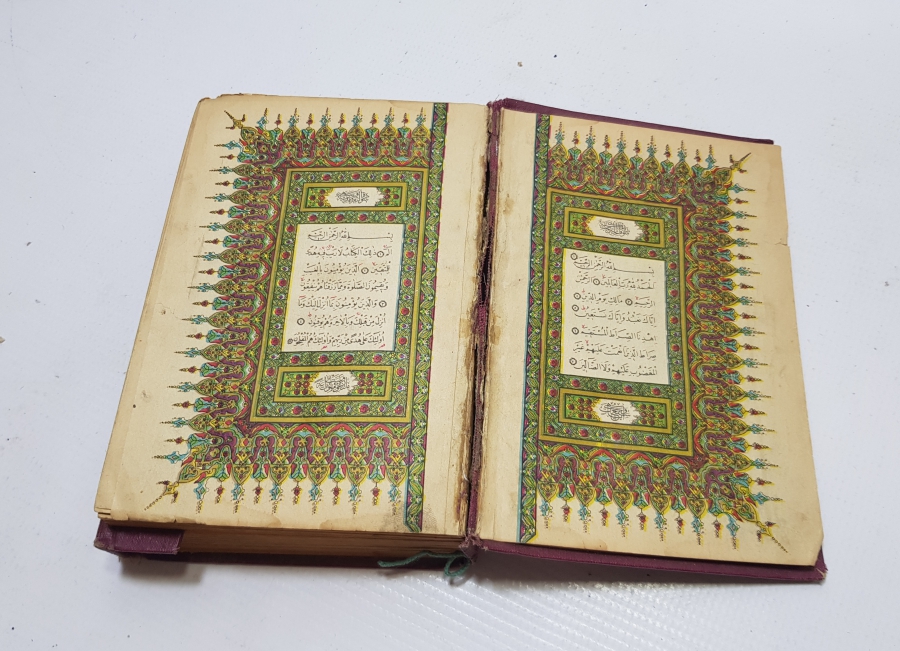 بِسْمِ اللّٰهِ الرَّحْمٰنِ الرَّحِيمِ
اَلْحَمْدُ لِلّٰهِ رَبِّ الْعَالَمِينَ الرَّحْمٰنِ
الرَّحِيمِ مَالِكِ يَوْمِ الدِّينِ
اِيَّاكَ نَعْبُدُ وَاِيَّاكَ نَسْتَعِينُ
اِهْدِنَا الصِّرَاطَ الْمُسْتَقِيمَ
صِرَاطَ الَّذِينَ اَنْعَمْتَ عَلَيْهِمْ غَيْرِ
الْمَغْضُوبِ عَلَيْهِمْ وَلَا الضَّالِّينَ
بِسْمِ اللّٰهِ الرَّحْمٰنِ الرَّحِيمِ
الٓمٓ ذٰلِكَ الْكِتَابُ لَا رَيْبَ فِيهِ هُدًى
لِلْمُتَّقِينَ الَّذِينَ يُؤْمِنُونَ بِالْغَيْبِ
وَيُقِيمُونَ الصَّلٰوةَ وَمِمَّا رَزَقْنَاهُمْ يُنْفِقُونَ
وَالَّذِينَ يُؤْمِنُونَ بِمَا اُنْزِلَ اِلَيْكَ وَمَا
اُنْزِلَ مِنْ قَبْلِكَ وَبِالْاٰخِرَةِ هُمْ يُوقِنُونَ
اُولٰئِكَ عَلٰى هُدًى مِنْ رَبِّهِمْ وَاُولٰئِكَ هُمُ الْمُفْلِحُونَ